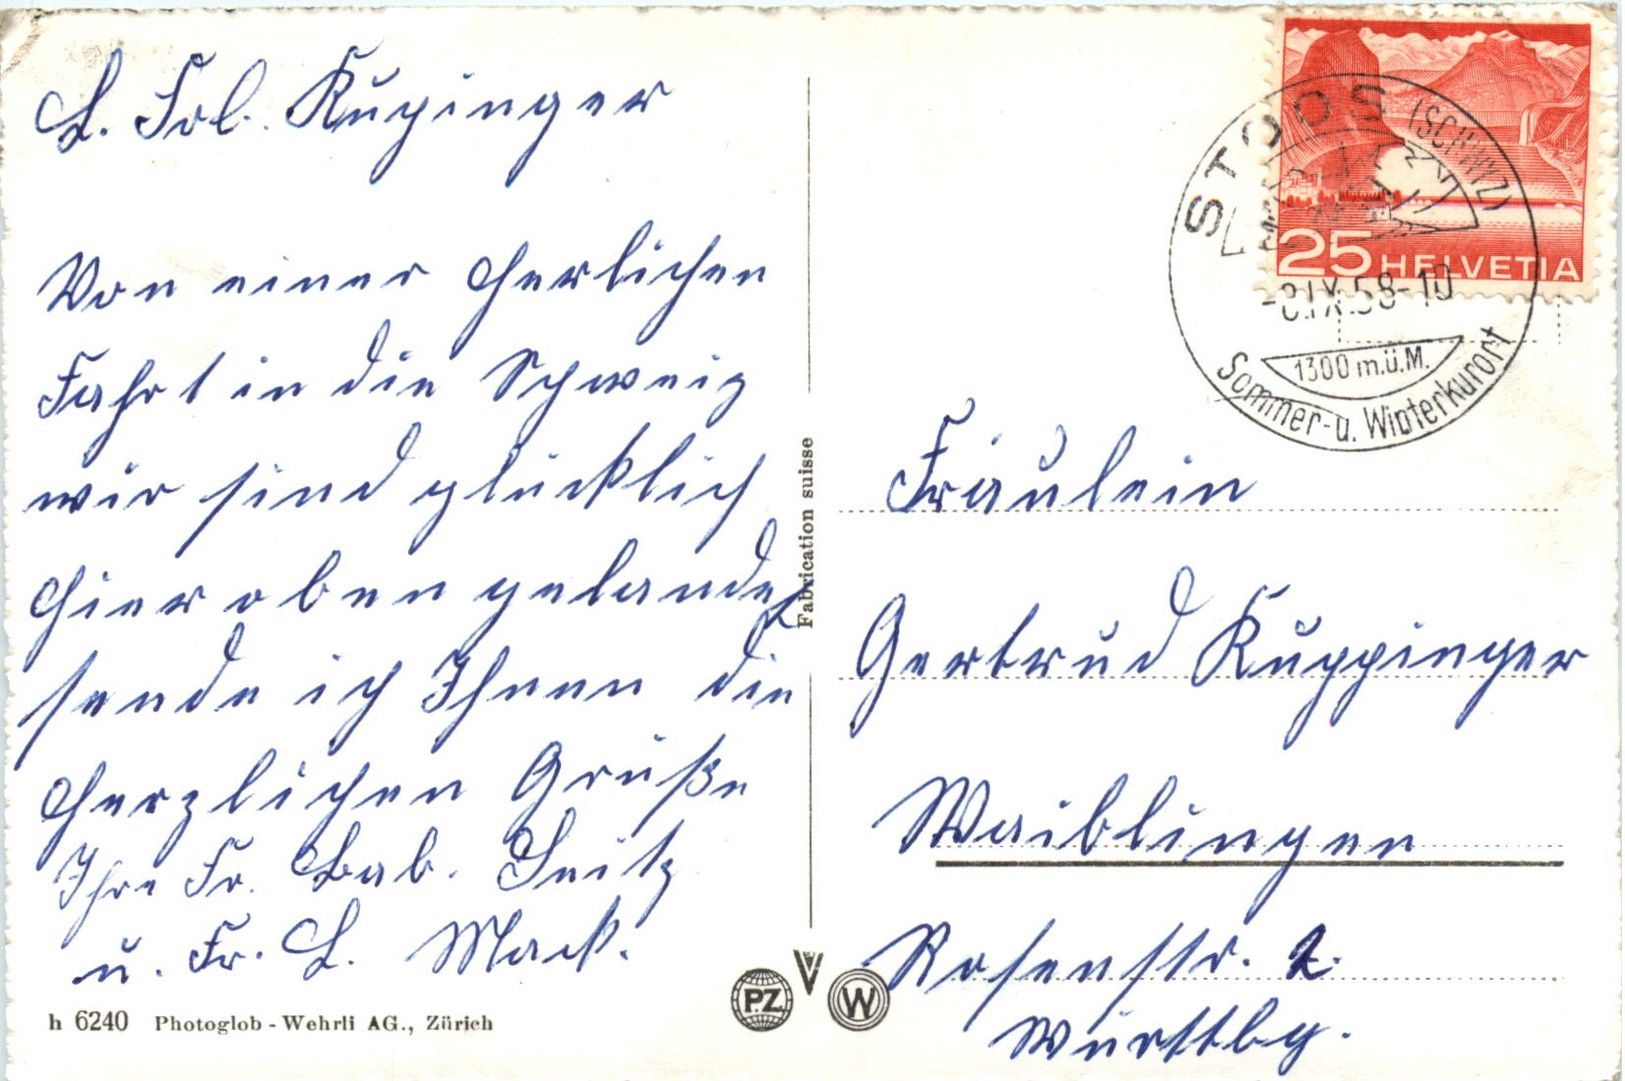 L. Frl. Kupinger
Von einer herlichen
Fahrt in die Schweiz
wir sind glücklich
hier oben gelandet
sende ich Ihnen die
herzlichen Grüße
Ihre Fr. Bab. Seitz
u. Fr. L. Mack.
h 6240 Photoglob - Wehrli AG., Zürich
Fabrication suisse
P.Z.
W
25 HELVETIA
STOOS (SCHWYZ)
-8.IX.58-10
1300 m.ü.M.
Sommer- u. Winterkurort
Fräulein
Gertrud Kuppinger
Waiblingen
Rosenstr. 2.
Württbg.